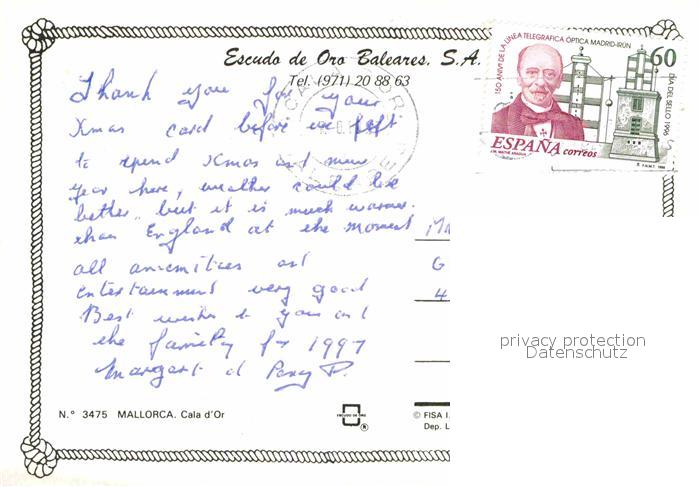 Escudo de Oro Baleares, S.A.
Tel. (971) 20 88 63
150 ANIVº DE LA LÍNEA TELEGRÁFICA ÓPTICA MADRID-IRÚN
60
DÍA DEL SELLO 1996
ESPAÑA correos
Thank you for your
Xmas card before we left
to spend Xmas and new
year here, weather could be
better, but it is much warmer
than England at the moment
all amenities and
entertainment very good
Best wishes to you and
the family for 1997
Margaret & Percy P.
G
4
privacy protection
Datenschutz
N.º 3475 MALLORCA. Cala d'Or
ESCUDO DE ORO
®
© FISA I.
Dep. L